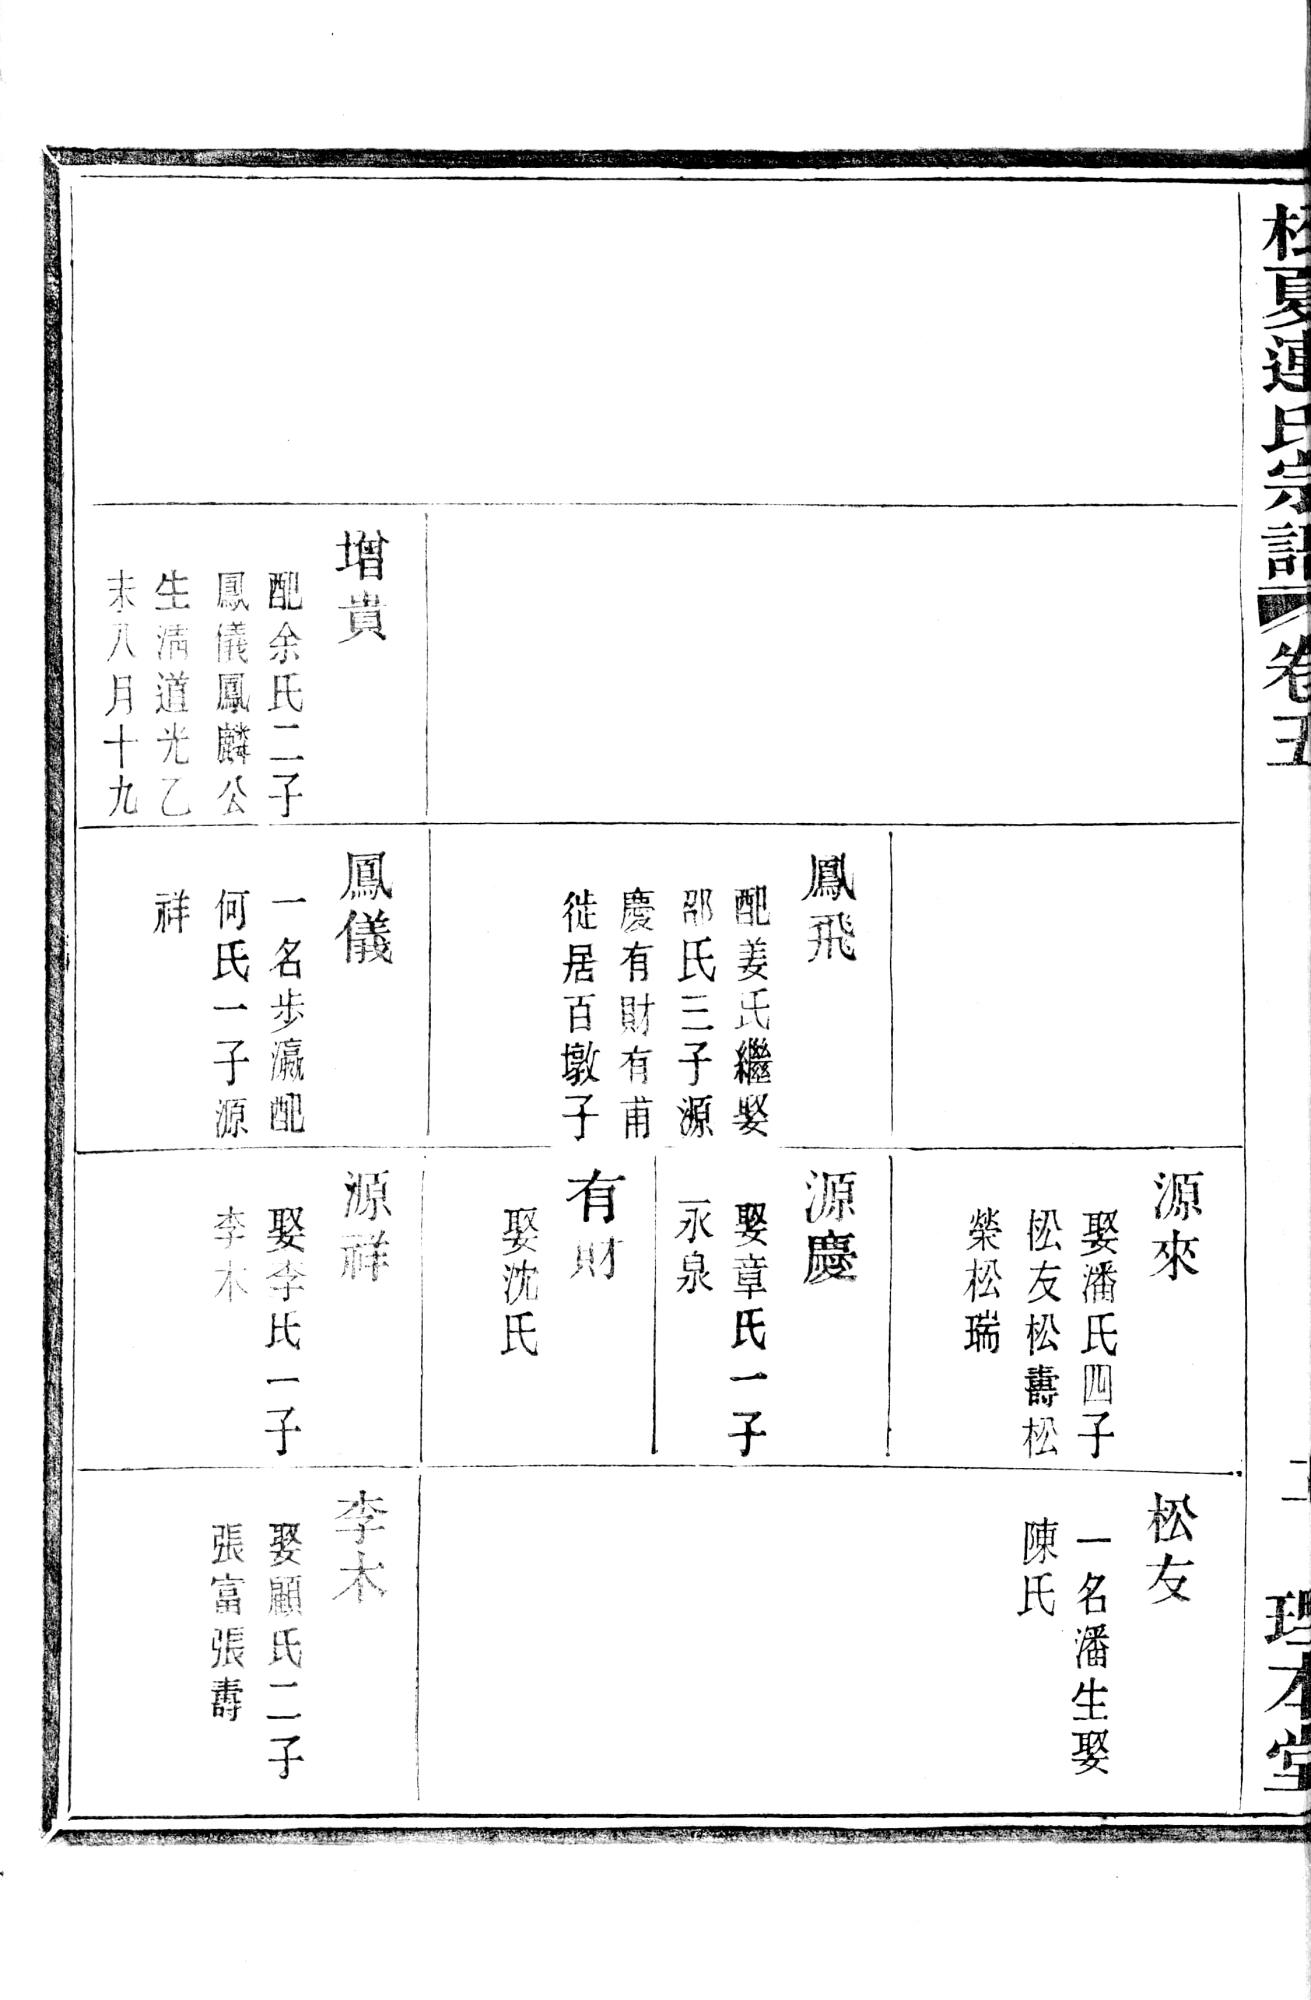 松夏連氏宗譜 卷五
理本堂
源來
娶潘氏四子
松友松壽松
榮松瑞
松友
一名潘生娶
陳氏
鳳飛
配姜氏繼娶
邵氏三子源
慶有財有甫
徙居百墩子
源慶
娶章氏一子
永泉
有財
娶沈氏
增貴
配余氏二子
鳳儀鳳麟公
生清道光乙
未八月十九
鳳儀
一名步瀛配
何氏一子源
祥
源祥
娶李氏一子
李木
李木
娶顧氏二子
張富張壽